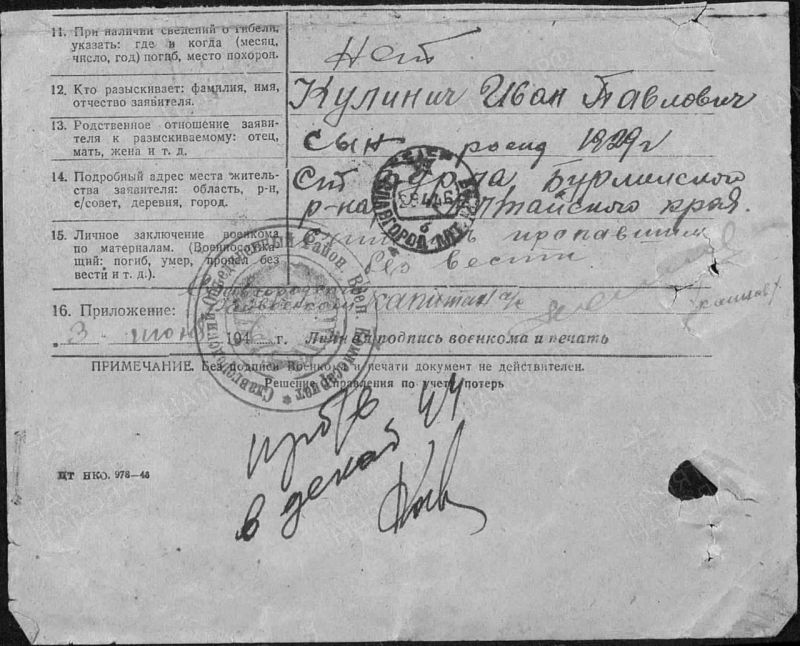 11. При наличии сведений о гибели,
указать: где и когда (месяц,
число, год) погиб, место похорон.
Нет
12. Кто разыскивает: фамилия, имя,
отчество заявителя.
Кулинич Иван Павлович
13. Родственное отношение заяви-
теля к разыскиваемому: отец,
мать, жена и т. д.
сын рожд 1929 г
14. Подробный адрес места житель-
ства заявителя: область, р-н,
с/совет, деревня, город.
ст Бурла Бурлинского
р-на Алтайского края.
15. Личное заключение военкома
по материалам. (Военнослужа-
щий: погиб, умер, пропал без
вести и т. д.).
пропавшим
без вести
16. Приложение:
капитан а/с
3 июня 194 г. Личная подпись военкома и печать
ПРИМЕЧАНИЕ. Без подписи Военкома и печати документ не действителен.
Решение Управления по учету потерь
Славгородский Объединенный Район. Воен. Комиссариат
пр б/в 44
в декаб
ЦТ НКО. 978—46